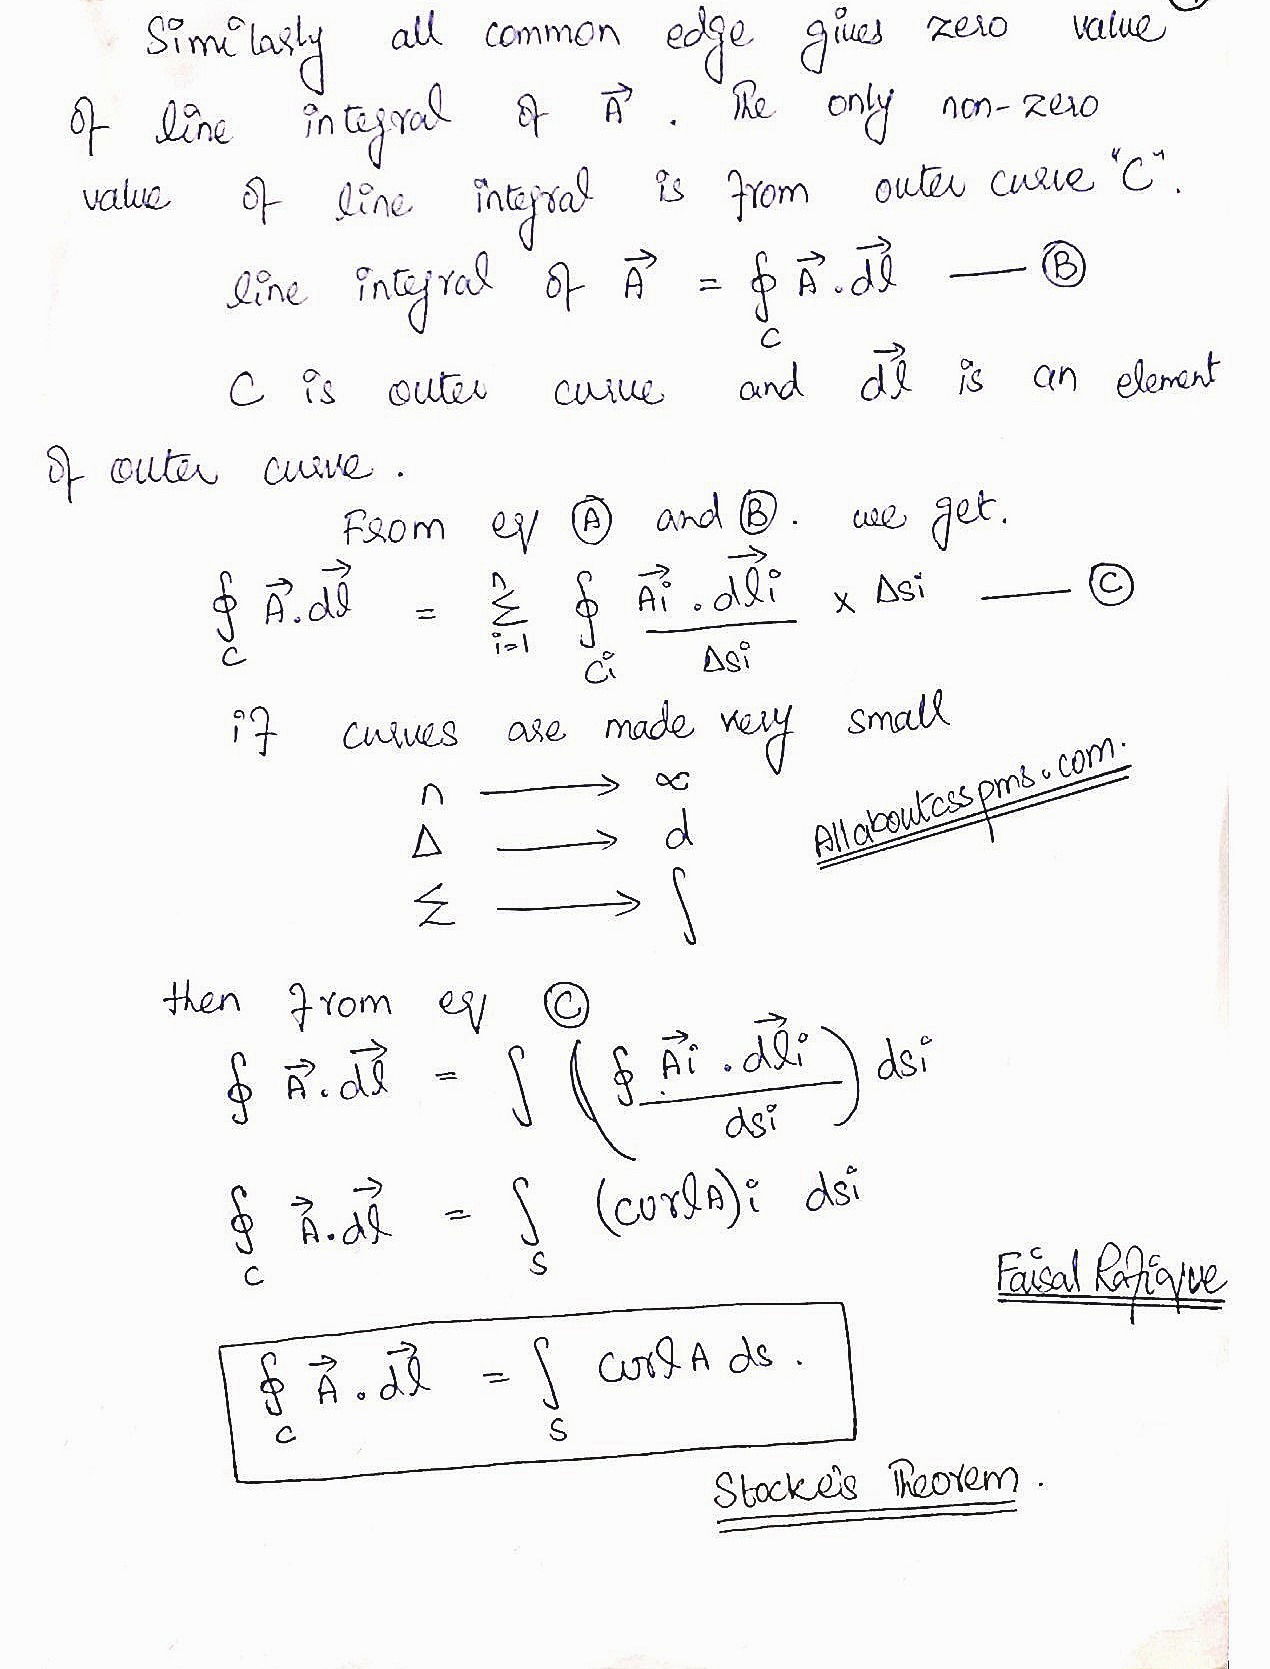 Similarly all common edge gives zero value
of line integral of A⃗ . The only non-zero
value of line integral is from outer curve "C".
line integral of A⃗ = ∮_C A⃗ . dl⃗ —— Ⓑ
C is outer curve and dl⃗ is an element
of outer curve .
From eq Ⓐ and Ⓑ . we get.
∮_C A⃗ . dl⃗ = Σ_{i=1}^{n} ∮_{Ci} (A⃗i . dl⃗i / Δsi) x Δsi —— Ⓒ
if curves are made very small
n ⟶ ∞
Δ ⟶ d
Allaboutcsspms.com.
Σ ⟶ ∫
then from eq Ⓒ
∮ A⃗ . dl⃗ = ∫ (∮ A⃗i . dl⃗i / dsi) dsi
∮_C A⃗ . dl⃗ = ∫_S (curl A)i dsi
Faisal Rafique
∮_C A⃗ . dl⃗ = ∫_S Curl A ds .
Stocke's Theorem .